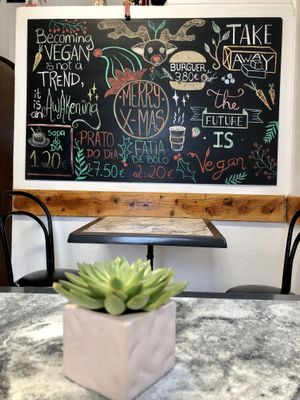 Becoming
VEGAN
is not a
TREND,
it is
an AWAKENING
sopa do
dia
1.20€
PRATO
DO DIA
7.50€
MERRY
X-MAS
FATIA
DE BOLO
2.20€
BURGUER
3,80€
TAKE
AWAY
the
FUTURE
IS
Vegan